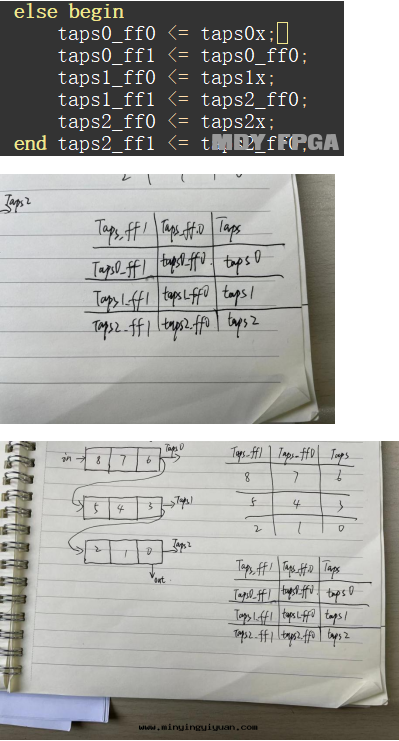 else begin
taps0_ff0 <= taps0x;
taps0_ff1 <= taps0_ff0;
taps1_ff0 <= taps1x;
taps1_ff1 <= taps2_ff0;
taps2_ff0 <= taps2x;
end taps2_ff1 <= taps2_ff0;
MDY FPGA
2 1 0
Taps2
Taps_ff1 Taps_ff0 Taps
Taps0_ff1 taps0_ff0 taps0
Taps1_ff1 taps1_ff0 taps1
Taps2_ff1 taps2_ff0 taps2
in 8 7 6 Taps0
5 4 3 Taps1
2 1 0 Taps2
out
Taps_ff1 Taps_ff0 Taps
8 7 6
5 4 3
2 1 0
Taps_ff1 Taps_ff0 Taps
Taps0_ff1 taps0_ff0 taps0
Taps1_ff1 taps1_ff0 taps1
Taps2_ff1 taps2_ff0 taps2
www.minyingyiyuan.com